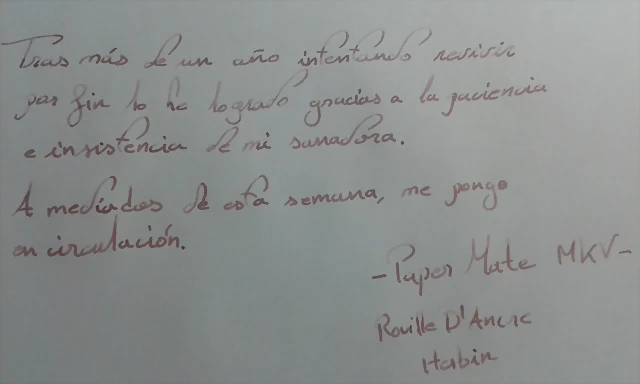 Tras más de un año intentando revivir
por fin lo he logrado gracias a la paciencia
e insistencia de mi sanadora.
A mediados de esta semana, me pongo
en circulación.
- Paper Mate MKV -
Rouille D'Ancre
Herbin